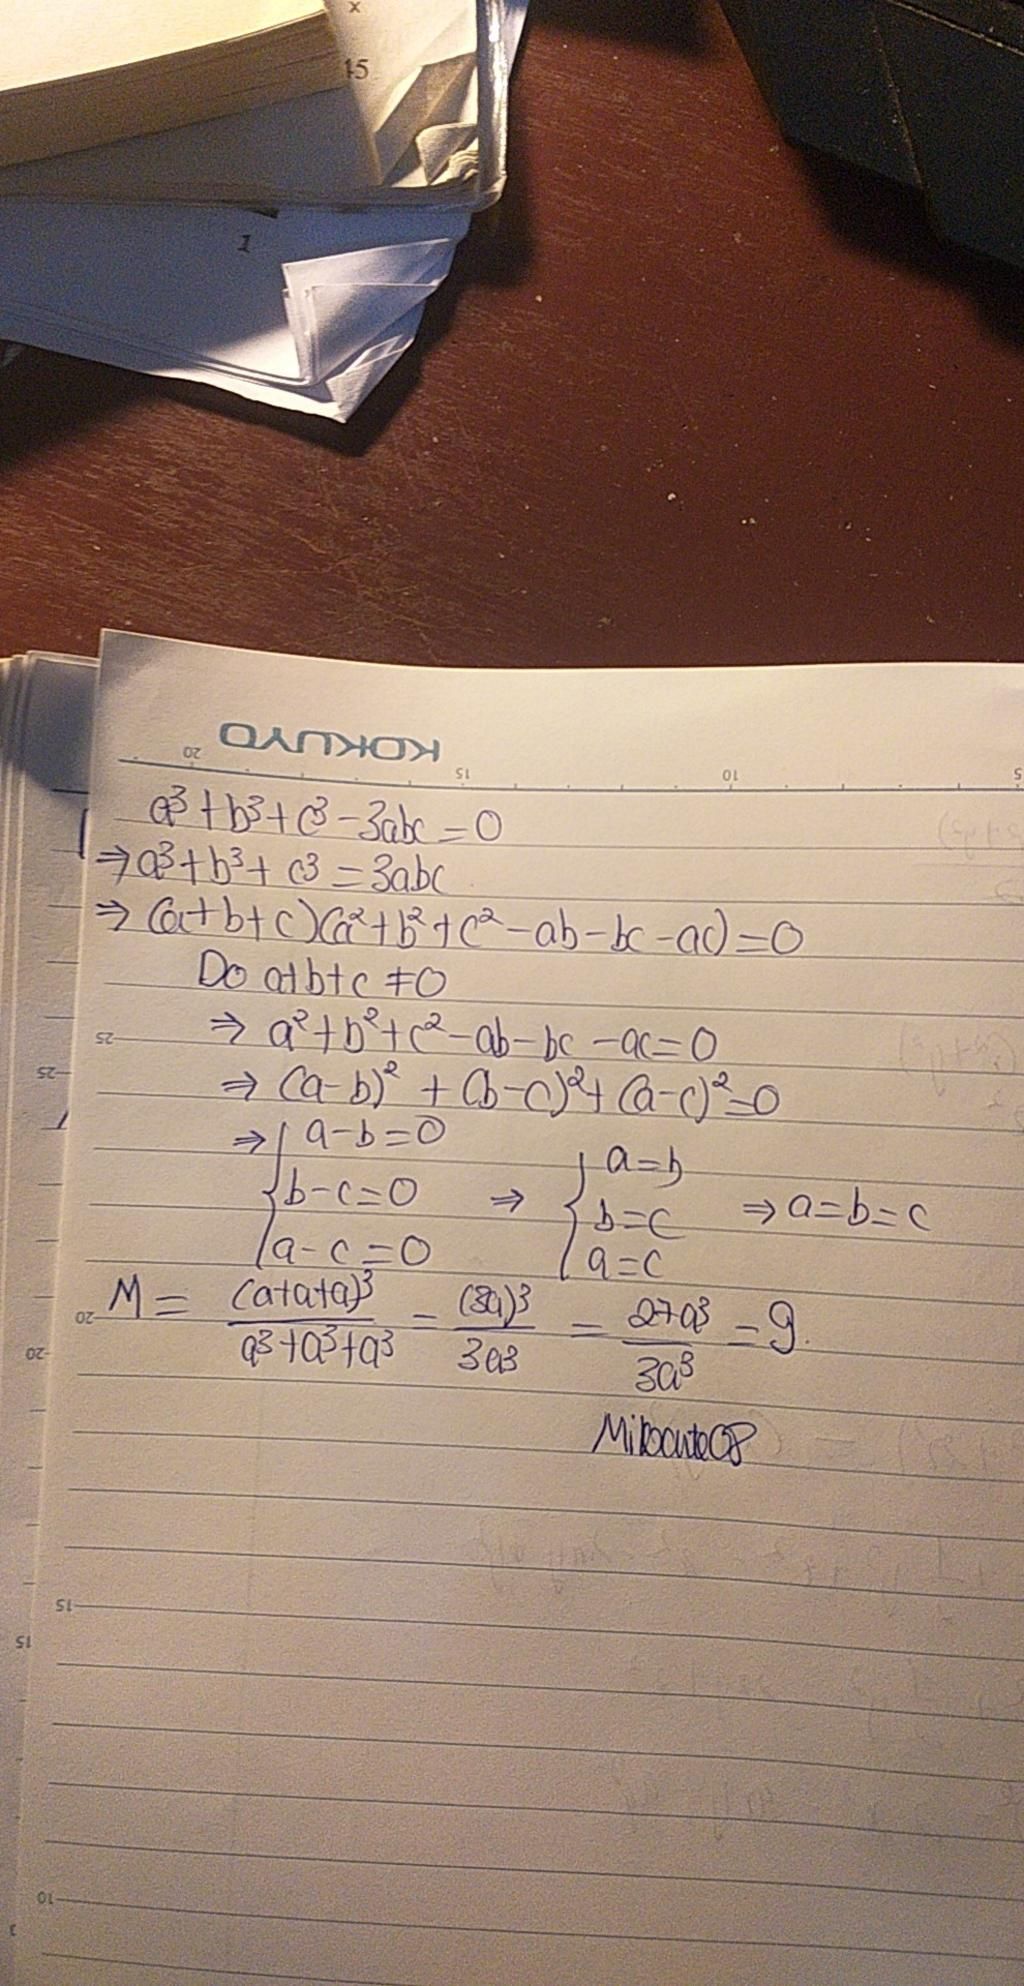 x
15
1
KOKUYO
20 15 10 5
a³+b³+c³-3abc=0
⇒a³+b³+c³=3abc
⇒(a+b+c)(a²+b²+c²-ab-bc-ac)=0
Do a+b+c≠0
⇒ a²+b²+c²-ab-bc-ac=0
⇒ (a-b)²+(b-c)²+(a-c)²=0
⇒ { a-b=0
b-c=0 ⇒ { a=b
a-c=0 b=c ⇒ a=b=c
a=c
M = (a+a+a)³/(a³+a³+a³) = (3a)³/3a³ = 27a³/3a³ = 9.
25
25
20
20
15
15
10